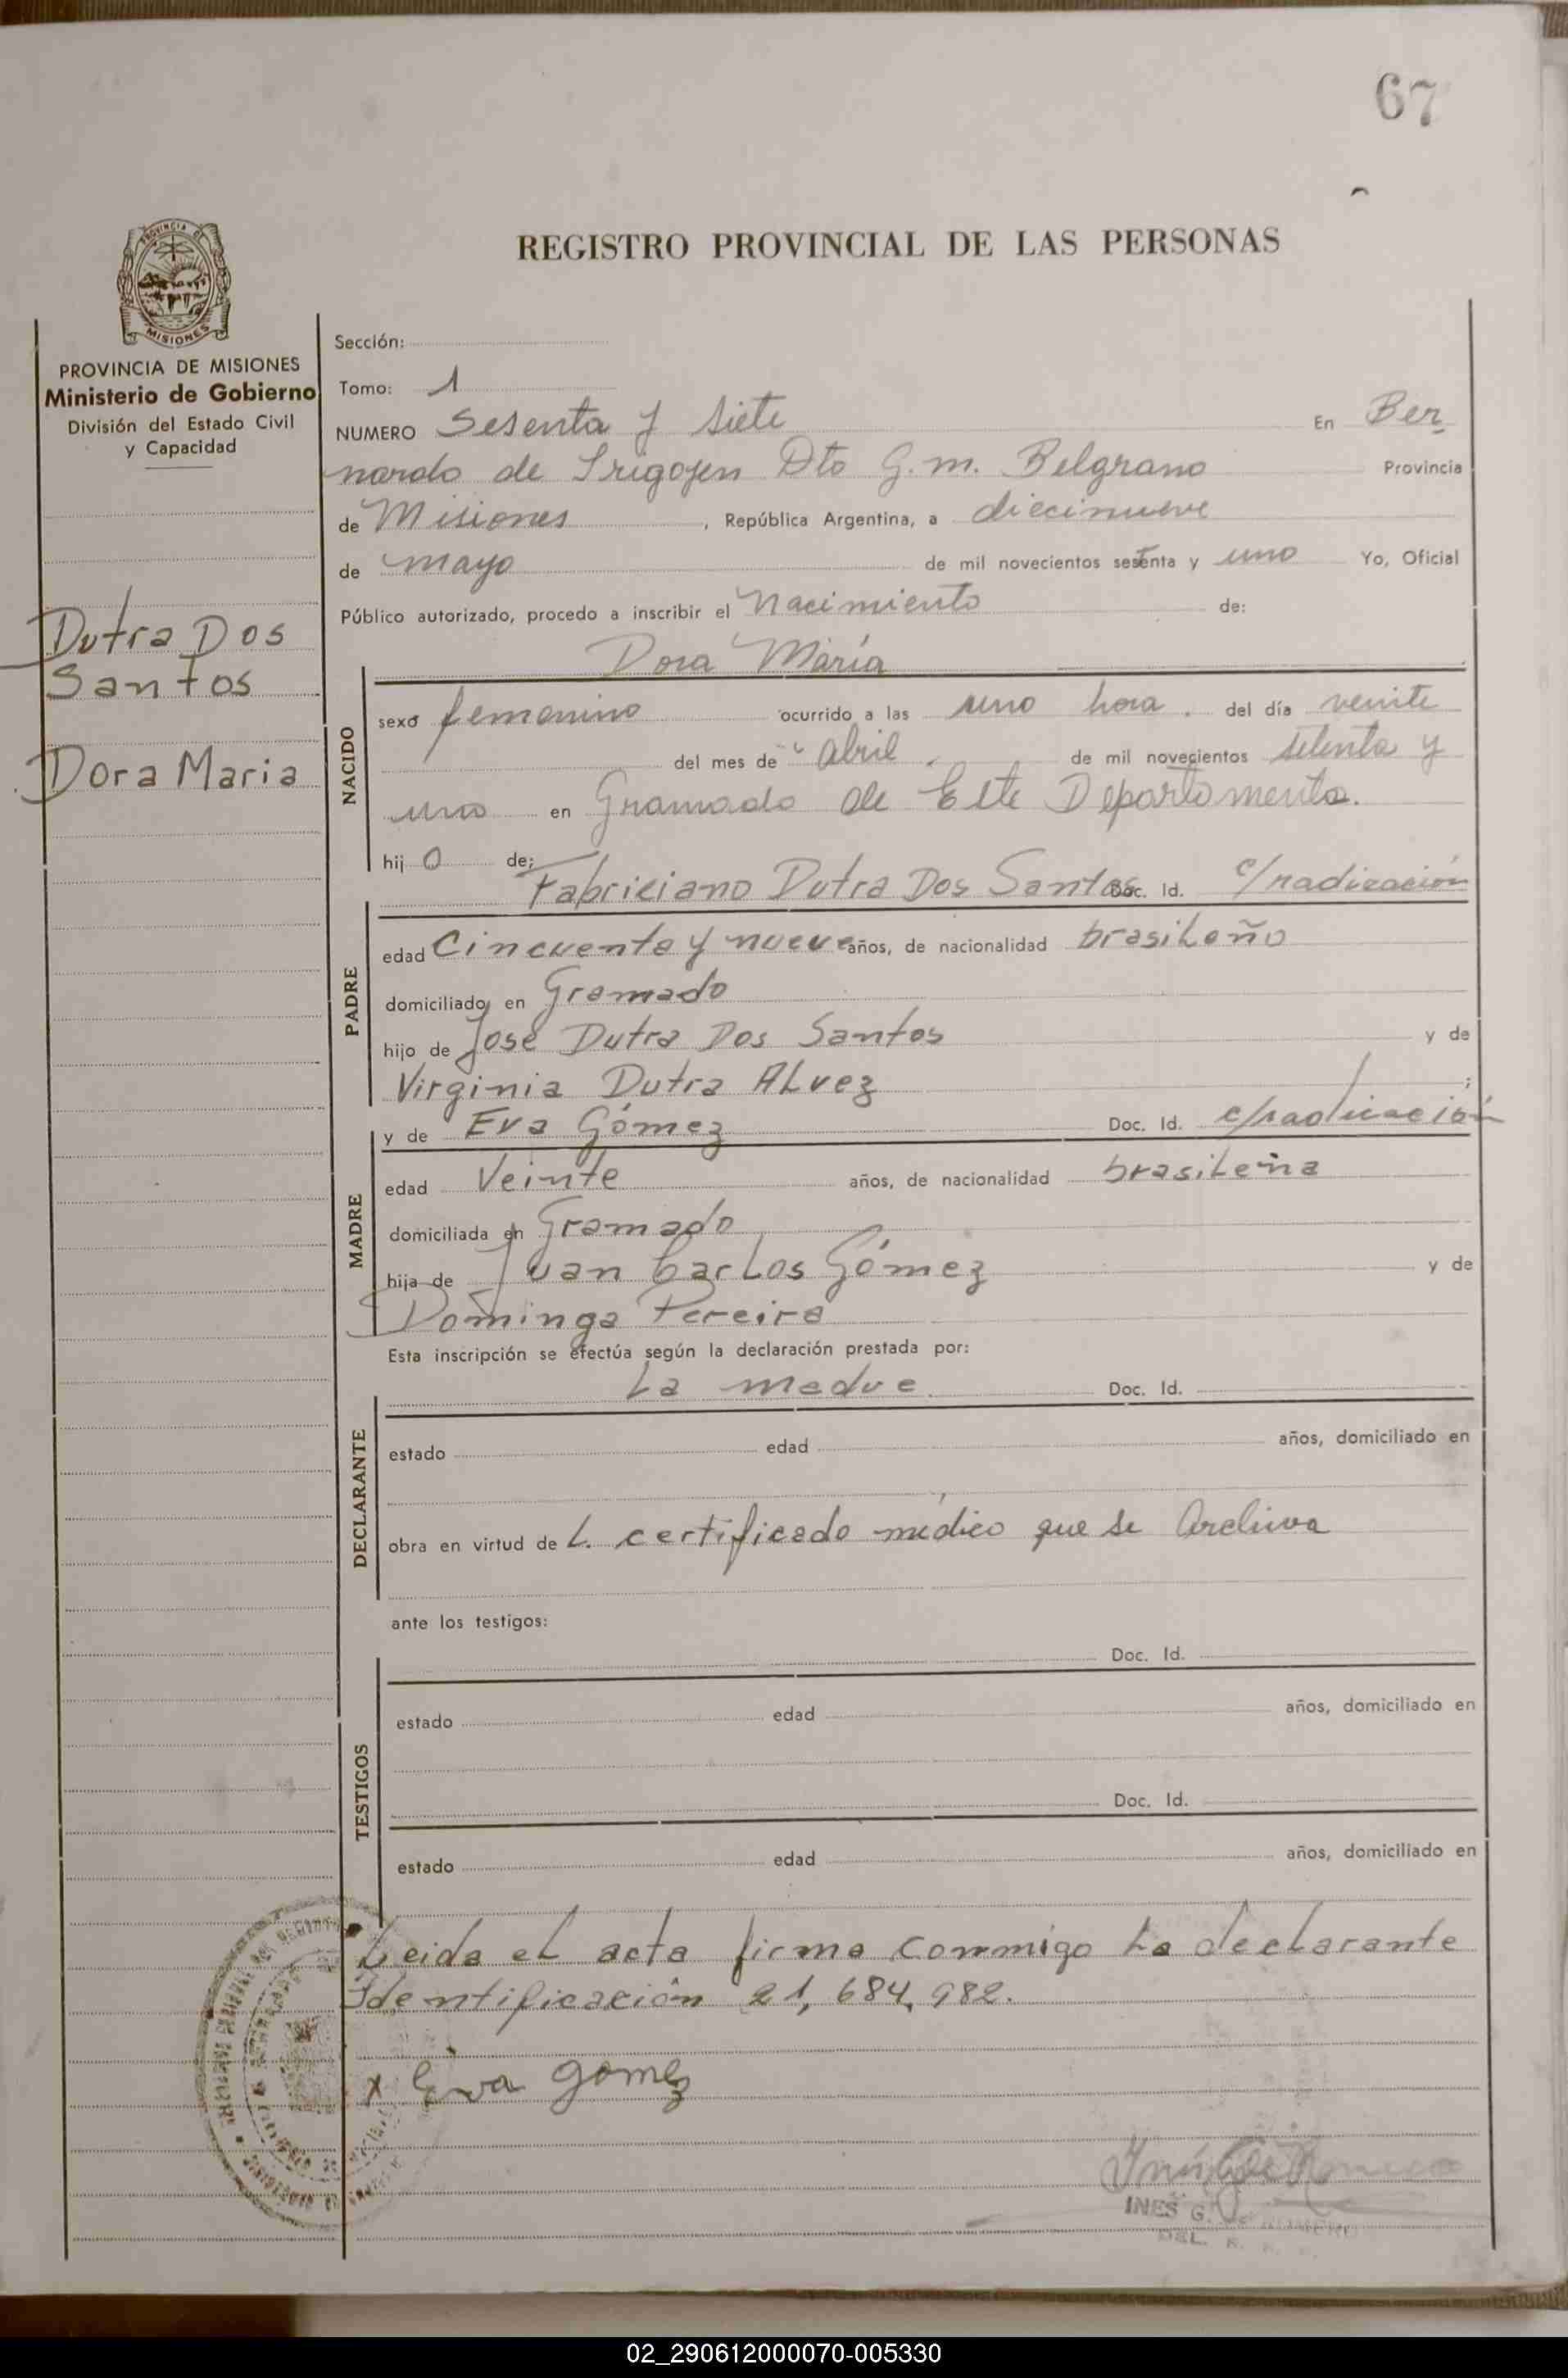 67
REGISTRO PROVINCIAL DE LAS PERSONAS
PROVINCIA DE
MISIONES
PROVINCIA DE MISIONES
Ministerio de Gobierno
División del Estado Civil
y Capacidad
Dutra Dos
Santos
Dora Maria
Sección:
Tomo: 1
NUMERO Sesenta y siete En Ber
nardo de Irigoyen Dto G.m. Belgrano Provincia
de Misiones, República Argentina, a diecinueve
de mayo de mil novecientos sesenta y uno Yo, Oficial
Público autorizado, procedo a inscribir el Nacimiento de:
Dora María
NACIDO
sexo femenino ocurrido a las uno hora. del día veinte
del mes de abril. de mil novecientos setenta y
uno en Gramado de Este Departamento.
hij o de:
Fabriciano Dutra Dos Santos Doc. Id. c/radicación
PADRE
edad Cincuenta y nueve años, de nacionalidad brasileño
domiciliado en Gramado
hijo de José Dutra Dos Santos y de
Virginia Dutra ALvez ;
y de Eva Gómez Doc. Id. c/radicación
MADRE
edad Veinte años, de nacionalidad brasileña
domiciliada en Gramado
hija de Juan Carlos Gómez y de
Dominga Pereira
Esta inscripción se efectúa según la declaración prestada por:
La madre Doc. Id.
DECLARANTE
estado edad años, domiciliado en
obra en virtud de L. certificado médico que se Archiva
ante los testigos:
Doc. Id.
TESTIGOS
estado edad años, domiciliado en
Doc. Id.
estado edad años, domiciliado en
Leida el acta firma conmigo La declarante
Identificación 21,684,982.
x Eva gomez
INES G.
DEL.
02_290612000070-005330